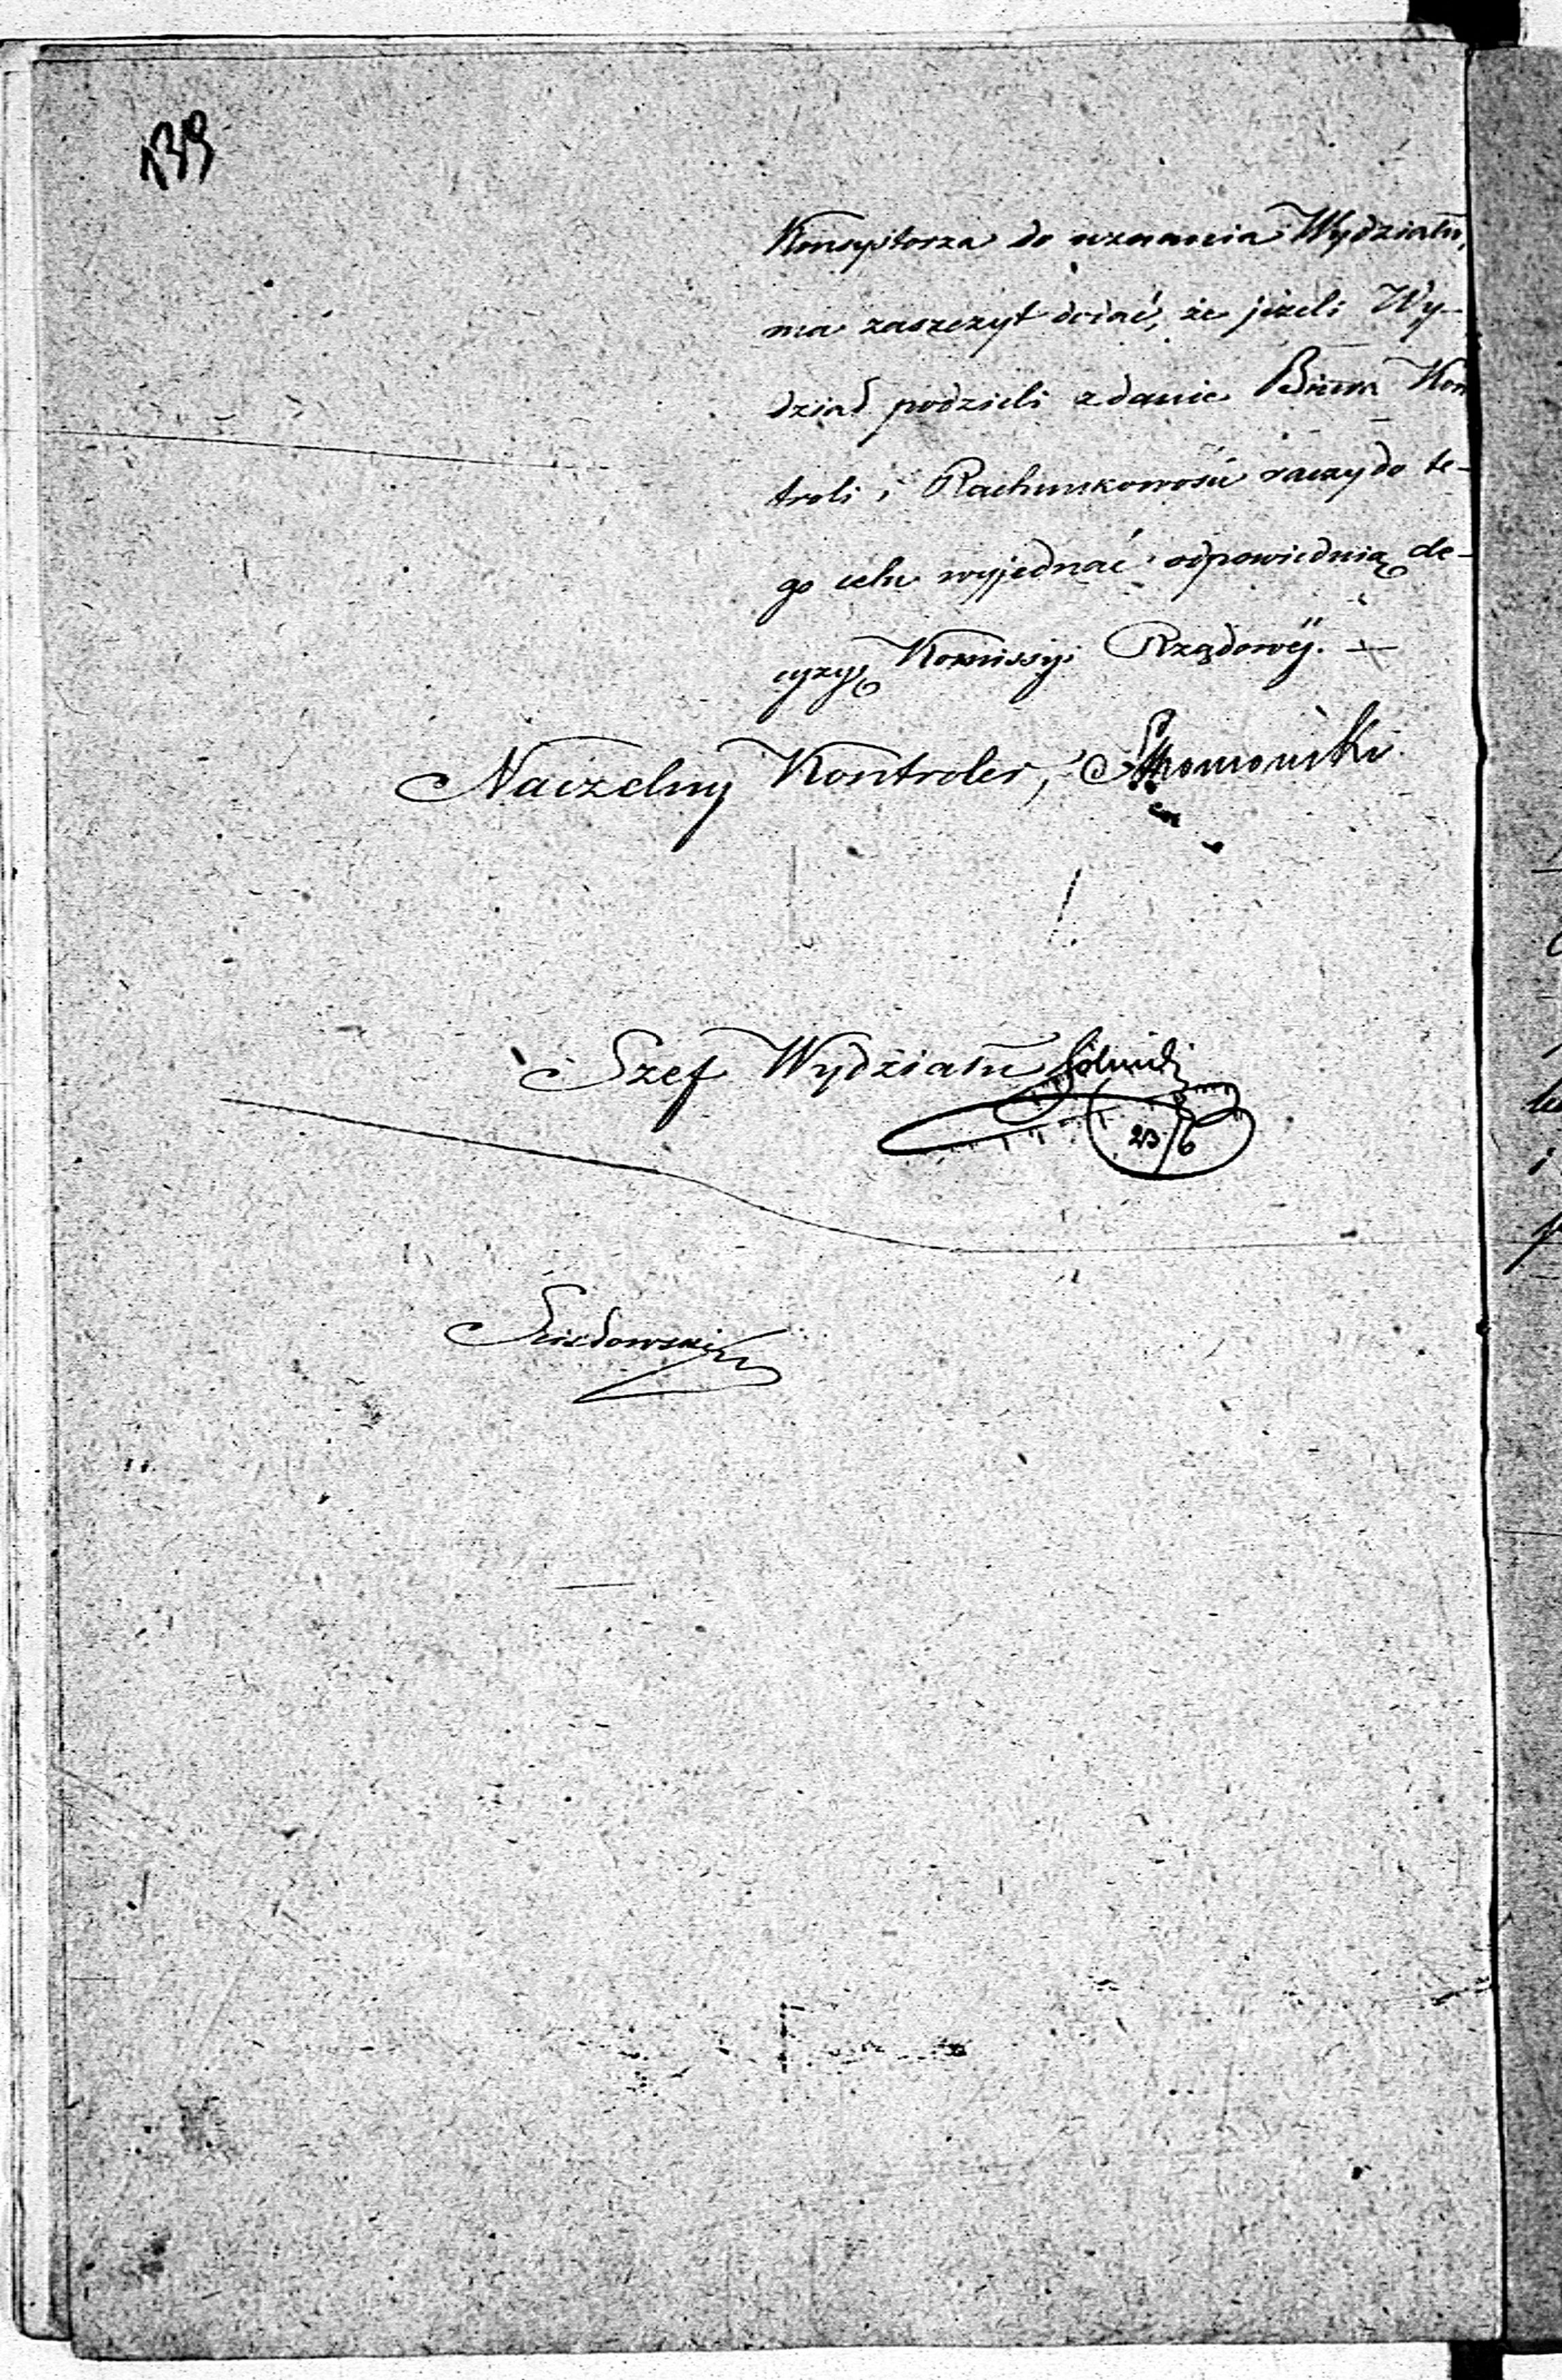 139
Konsyptorza do uznania Wydziału,
ma zaszczyt dodać, że jeżeli Wy-
dział podzieli zdanie Biura Kon
troli i Rachunkowości raczy do te-
go celu wyjednać odpowiednią de-
cyzyę Kommissyi Rządowéj. —
Naczelny Kontroler,
Szef Wydziału
23/6